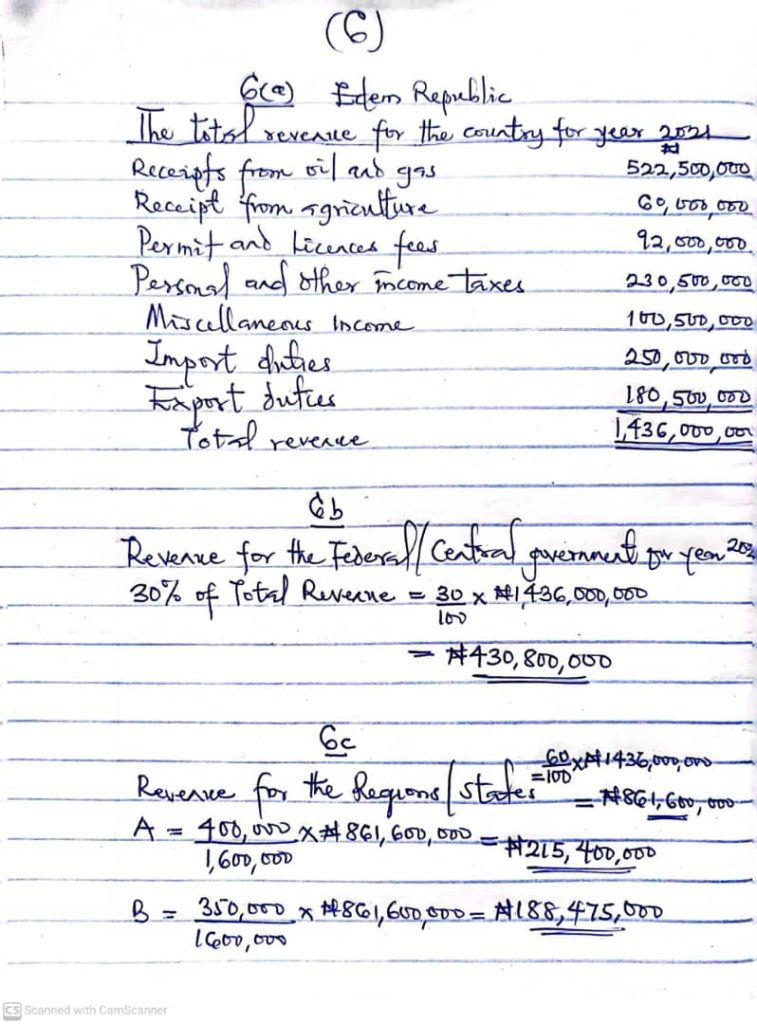 (6)
6(a) Edem Republic
The total revenue for the country for year 2021
₦
Receipts from oil and gas 522,500,000
Receipt from agriculture 60,000,000
Permit and Licences fees 92,000,000
Personal and other income taxes 230,500,000
Miscellaneous Income 100,500,000
Import duties 250,000,000
Export duties 180,500,000
Total revenue 1,436,000,000
6b
Revenue for the Federal/Central government for year 202
30% of Total Revenue = 30/100 x ₦1,436,000,000
= ₦430,800,000
6c
Revenue for the Regions/States = 60/100 x ₦1436,000,000
= ₦861,600,000
A = 400,000/1,600,000 x ₦861,600,000 = ₦215,400,000
B = 350,000/1600,000 x ₦861,600,000 = ₦188,475,000
CS Scanned with CamScanner